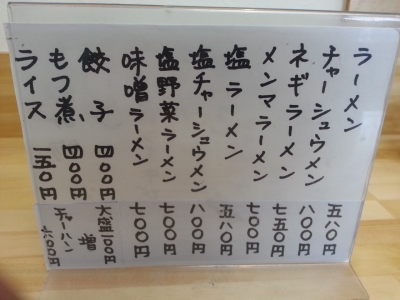 ラーメン 五八〇円
チャーシュウメン 八〇〇円
ネギラーメン 七五〇円
メンマラーメン 七〇〇円
塩ラーメン 五八〇円
塩チャーシュウメン 八〇〇円
塩野菜ラーメン 七〇〇円
味噌ラーメン 七〇〇円
餃子 四〇〇円
もつ煮 四〇〇円
ライス 一五〇円
大盛一〇〇円増
チャーハン 六〇〇円